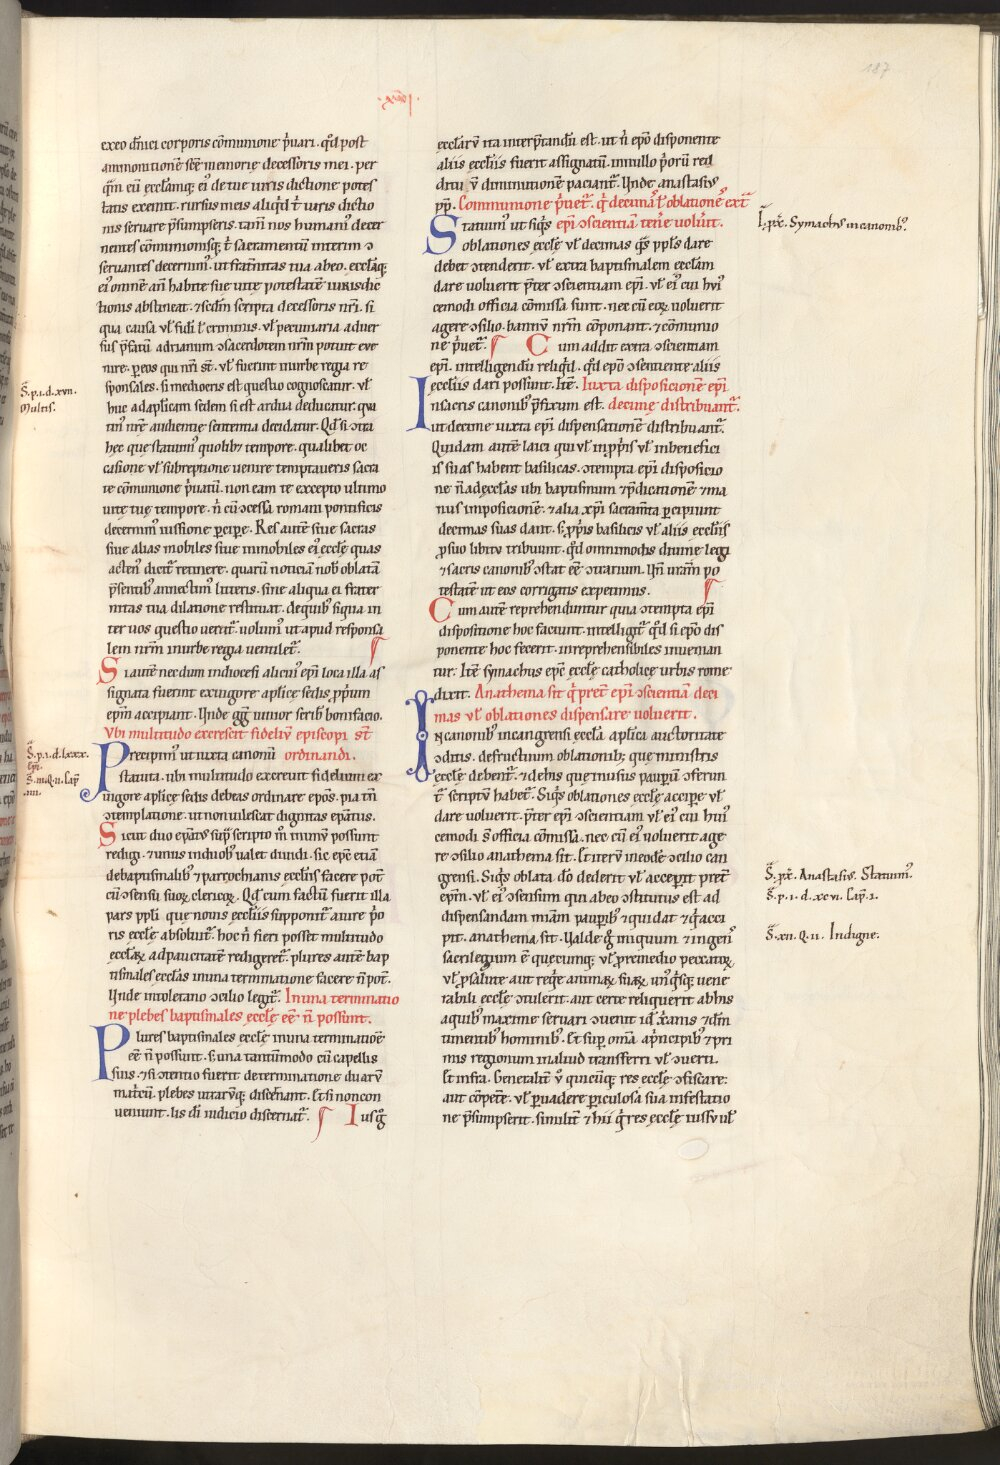 187
·xvi·
exeo dn̄ici corporis cōmunione p̓uari. qđ post
ammonitionē scē memorie decessoris mei. per
quā eū ecclamq; ei' de tue iuris dictione potes
tatis exemit. rursus meis aliqđ ł iuris dictio
nis seruare p̄sumpseris. tam nos humani decer
nentes cōmunionisq; ł sacramentū interim ɔ
seruantes decernim'. ut fraternitas tua ab eo. ecclaq;
ei' omnē an̄ habite sue uitę potestatē iurisdic
tionis abstineat. ⁊ sedm scripta decessoris nr̄i. si
qua causa uł fidei ł criminis. uł pecuniaria aduer
sus p̄fatū adrianum ɔsacerdotem nrm potuit eue
nire. per eos qui nri st̄. uł fuerint in urbe regia re
sponsales. si mediocris est questio cognoscatur. uł
huc ad aplicam sedem si est ardua deducatur. qua
tin' nrę audientię sententia decidatur. Qđ si ɔtra
hec que statuim' quolib; tempore. qualibet oc
casione uł subreptione uenire temptaueris sacra
te cōmunione p̓uatū. non eam te excepto ultimo
uitę tuę tempore. n̄ cū ɔcessa romani pontificis
decernim' iussione ꝑcipe. Res autē siue sacras
siue alias mobiles siue inmobiles ei' ecclę quas
acten' dicit' retinere. quarū noticiā nob' oblatā
p̄sentib' annectim' litteris. sine aliqua ei frater
nitas tua dilatione restituat. de quib' si qua in
ter uos questio uertit'. uolum' ut apud responsa
lem nrm in urbe regia uentilet'. ¶
Si autē necdum in diocesi alicui' epi loca illa as
signata fuerint ex uigore aplicę sedis p̓prium
epm accipiant. Unde gg' iunior scrib' bonifacio.
Vbi multitudo excrescit fideliū episcopi st̄
Precipim' ut iuxta canonū ordinandi.
statuta. ubi multitudo excreuit fidelium ex
uigore aplicę sedis debeas ordinare epos. pia tn̄
ɔtemplatione. ut non uilescat dignitas ep̄atus.
Sicut duo ep̄at' sup̄ scripto m̄ in unū possunt
redigi. ⁊ unus in duob' ualet diuidi. sic epc̄ etiā
de baptismalib' ⁊ parrochianis eccliis facere pot̄
cū ɔsensu suoꝝ clericoꝝ. Qđ cum factū fuerit illa
pars ppli que nouis eccliis supponit' a iure p̓o
ris ecclę absoluit'. hoc n̄ fieri posset multitudo
ecclaꝝ ad paucitatē redigeret'. plures autē bap
tismales ecclas in una terminatione facere n̄ pot̄.
Unde in toletano ɔcilio legit'. In una terminatio
ne plebes baptismales ecclę eē n̄ possunt.
Plures baptismales ecclę in una terminatiōe
eē n̄ possunt. s; una tantūmodo cū capellis
suis. ⁊ si ɔtentio fuerit de terminatione duarū
matricū. plebes utrarūq; discernant. Et si non con
ueniunt. iis dei iudicio discernat'. ¶ Ius g°
ecclarū ita interp̄tandū est. ut n̄ epo disponente
aliis eccliis fuerit assignatū. in nullo p̓orū red
ditu ū diminutionē paciant'. Unde anastasi'
pp. Communione p̓uet'. q̓ decimā ł oblationē ext̄
Statuim' ut siq̓s epi ɔscientiā tenē uolūit.
oblationes ecclę uł decimas q̄s ppl's dare
debet ɔtenderit. uł extra baptismalem ecclam
dare uoluerit p̄ter ɔscientiam epi. uł ei' cui hui'
cemodi officia cōmissa sunt. nec cū eoꝝ uoluerit
agere ɔsilio. bannū nrm cōponant. ⁊ cōmunio
ne p̓uet'. ¶ Cum addit extra ɔscientiam
epi. intelligendū reliq̓d. qđ epo ɔsentiente aliis
eccliis dari possunt. Itē. Iuxta disposicionē epi
In sacris canonib' p̄fixum est. decimę distribuant'.
ut decime iuxta epi dispensationē distribuant'.
Quidam autē laici qui uł in ppriis uł in benefici
is suas habent basilicas. ɔtempta epi disposicio
ne n̄ ad ecclas ubi baptismum ⁊ p̄dicationē ⁊ ma
nus imposicionē. ⁊ alia xpi sacramta ꝑcipiunt
decimas suas dant. s; ppriis basilicis uł aliis eccliis
ꝓ suo libitu tribuunt. qđ omnimodis diuine legi
⁊ sacris canonib' ɔstat eē ɔtrarium. Un̄ uram po
testatē ut eos corrigatis expetimus. ¶
Cum autē reprehenduntur quia ɔtempta epi
dispositione hoc faciunt. intelligit' qđ si epo dis
ponente hoc fecerit. inreprehensibiles inuenian
tur. Itē symachus epc̄ ecclę catholicę urbis rome
dixit. Anathema sit q̓ preter epi ɔscientiā deci
mas uł oblationes dispensare uoluerit.
In canonib' in gangrensi eccla aplica auctoritate
ɔditis. de fructuum oblationib; que ministris
ecclę debent'. ⁊ de his que in usus paupū oferun
t' scriptū habet'. Siq̓s oblationes ecclę accipe uł
dare uoluerit. p̄ter epi ɔscientiam uł ei' cui hui'
cemodi s' officia cōmissa. nec cū ei' uoluerit age
re ɔsilio anathema sit. Et iterū in eodē ɔcilio can
grensi. Siq̓s oblata do dederit uł acceperit preter
epm. uł ei' ɔsensum qui ab eo ɔstitutus est ad
dispensandam miam paupib' ⁊ qui dat ⁊ q̓ acci
pit. anathema sit. Ualde g° iniquum ⁊ ingens
sacrilegium ē quęcumq; uł p̓ remedio peccatoꝝ
uł ꝓ salute aut requie animaꝝ suaꝝ un'q̓sq; uene
rabili ecclę ɔtulerit. aut certe reliquerit ab his
a quib' maxime seruari ɔuenit id' xianis ⁊ dm
timentib' hominib'. Et sup omā a p̓ncipib' ⁊ pri
mis regionum in aliud transferri uł ɔuerti.
Et infra. Generalit' ū quicūq; res ecclę ɔfiscare:
aut cōpetē. uł ꝑuadere periculosa sua infestatio
ne p̄sumpserit. similit' ⁊ hii q̓ res ecclę iussu uł
S̄. p. i. d. xvii.
Multis.
S̄. p. i. d. lxxx.
Ep̄i.
S̄. iii. Q. ii. Cap̄
iiii.
I. px̄. Symach' in canonib'.
S̄. px̄. Anastasi'. Statuim'.
S̄. p. i. d. xcvi. Cap̄. i.
S̄. xii. Q. ii. Indigne.